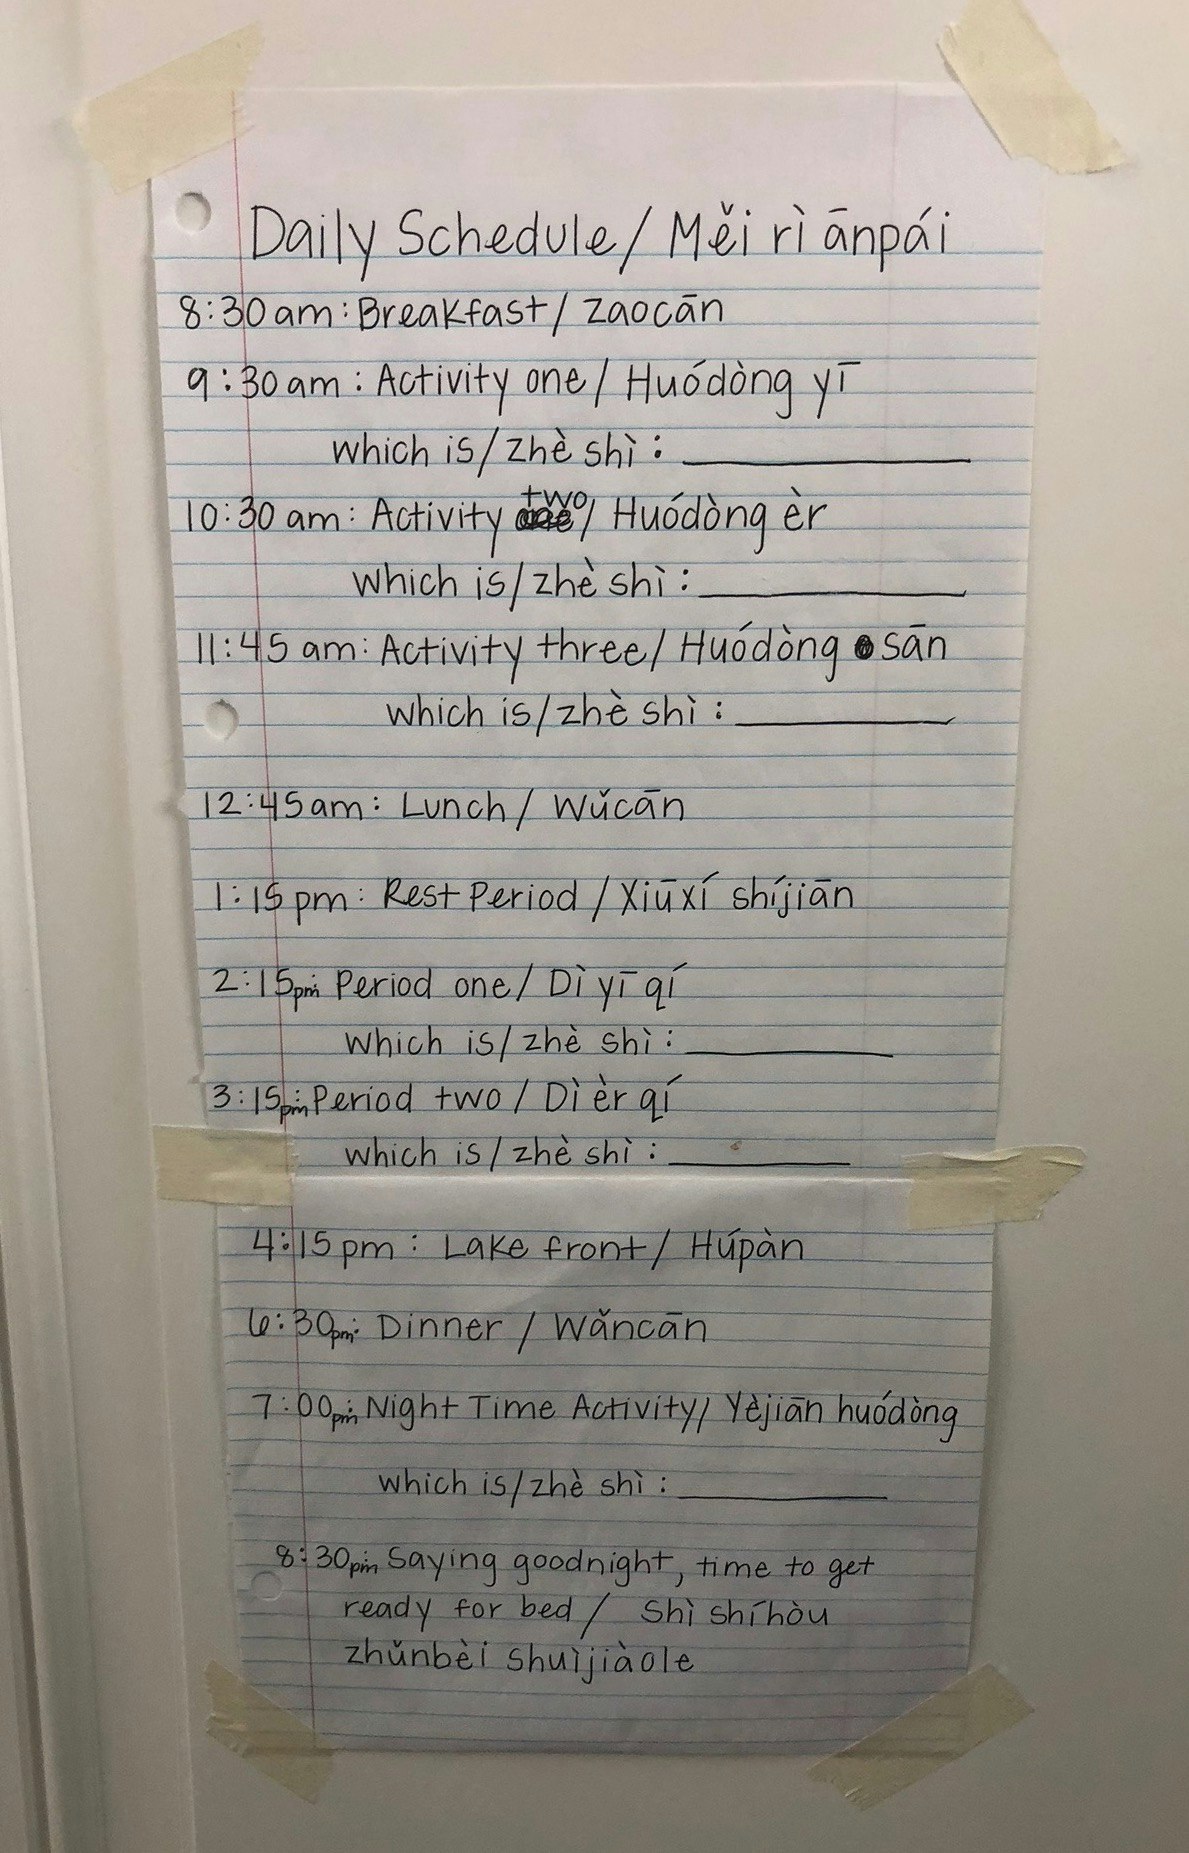 Daily Schedule / Měi rì ānpái
8:30 am: Breakfast / zaocān
9:30 am: Activity one / Huódòng yī
which is / zhè shì:
10:30 am: Activity two / Huódòng èr
which is / zhè shì:
11:45 am: Activity three / Huódòng sān
which is / zhè shì:
12:45 am: Lunch / Wǔcān
1:15 pm: Rest Period / Xiūxí shíjiān
2:15 pm: Period one / Dì yī qí
which is / zhè shì:
3:15 pm: Period two / Dì èr qí
which is / zhè shì:
4:15 pm: Lake front / Húpàn
6:30 pm: Dinner / Wǎncān
7:00 pm: Night Time Activity / Yèjiān huódòng
which is / zhè shì:
8:30 pm: Saying goodnight, time to get
ready for bed / Shì shíhòu
zhǔnbèi shuìjiàole